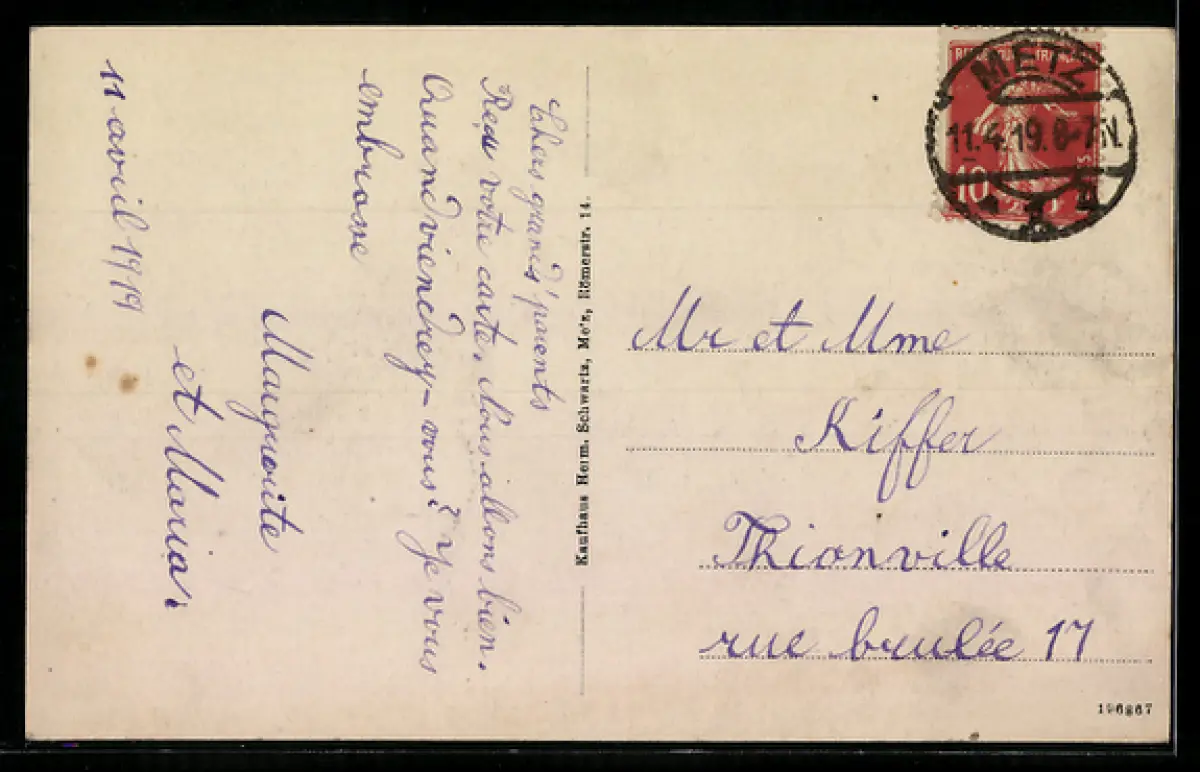 11 avril 1919
Chers grands'parents
Reçu votre carte. Nous allons bien.
Quand viendrey-vous? Je vous
embrasse
Marguerite
et Maria.
Kaufhaus Herm. Schwartz, Metz, Römerstr. 14.
REPUBLIQUE FRANÇAISE
10
METZ
11.4.19.6-7N.
Mr et Mme
Kiffer
Thionville
rue brulée 17
196867